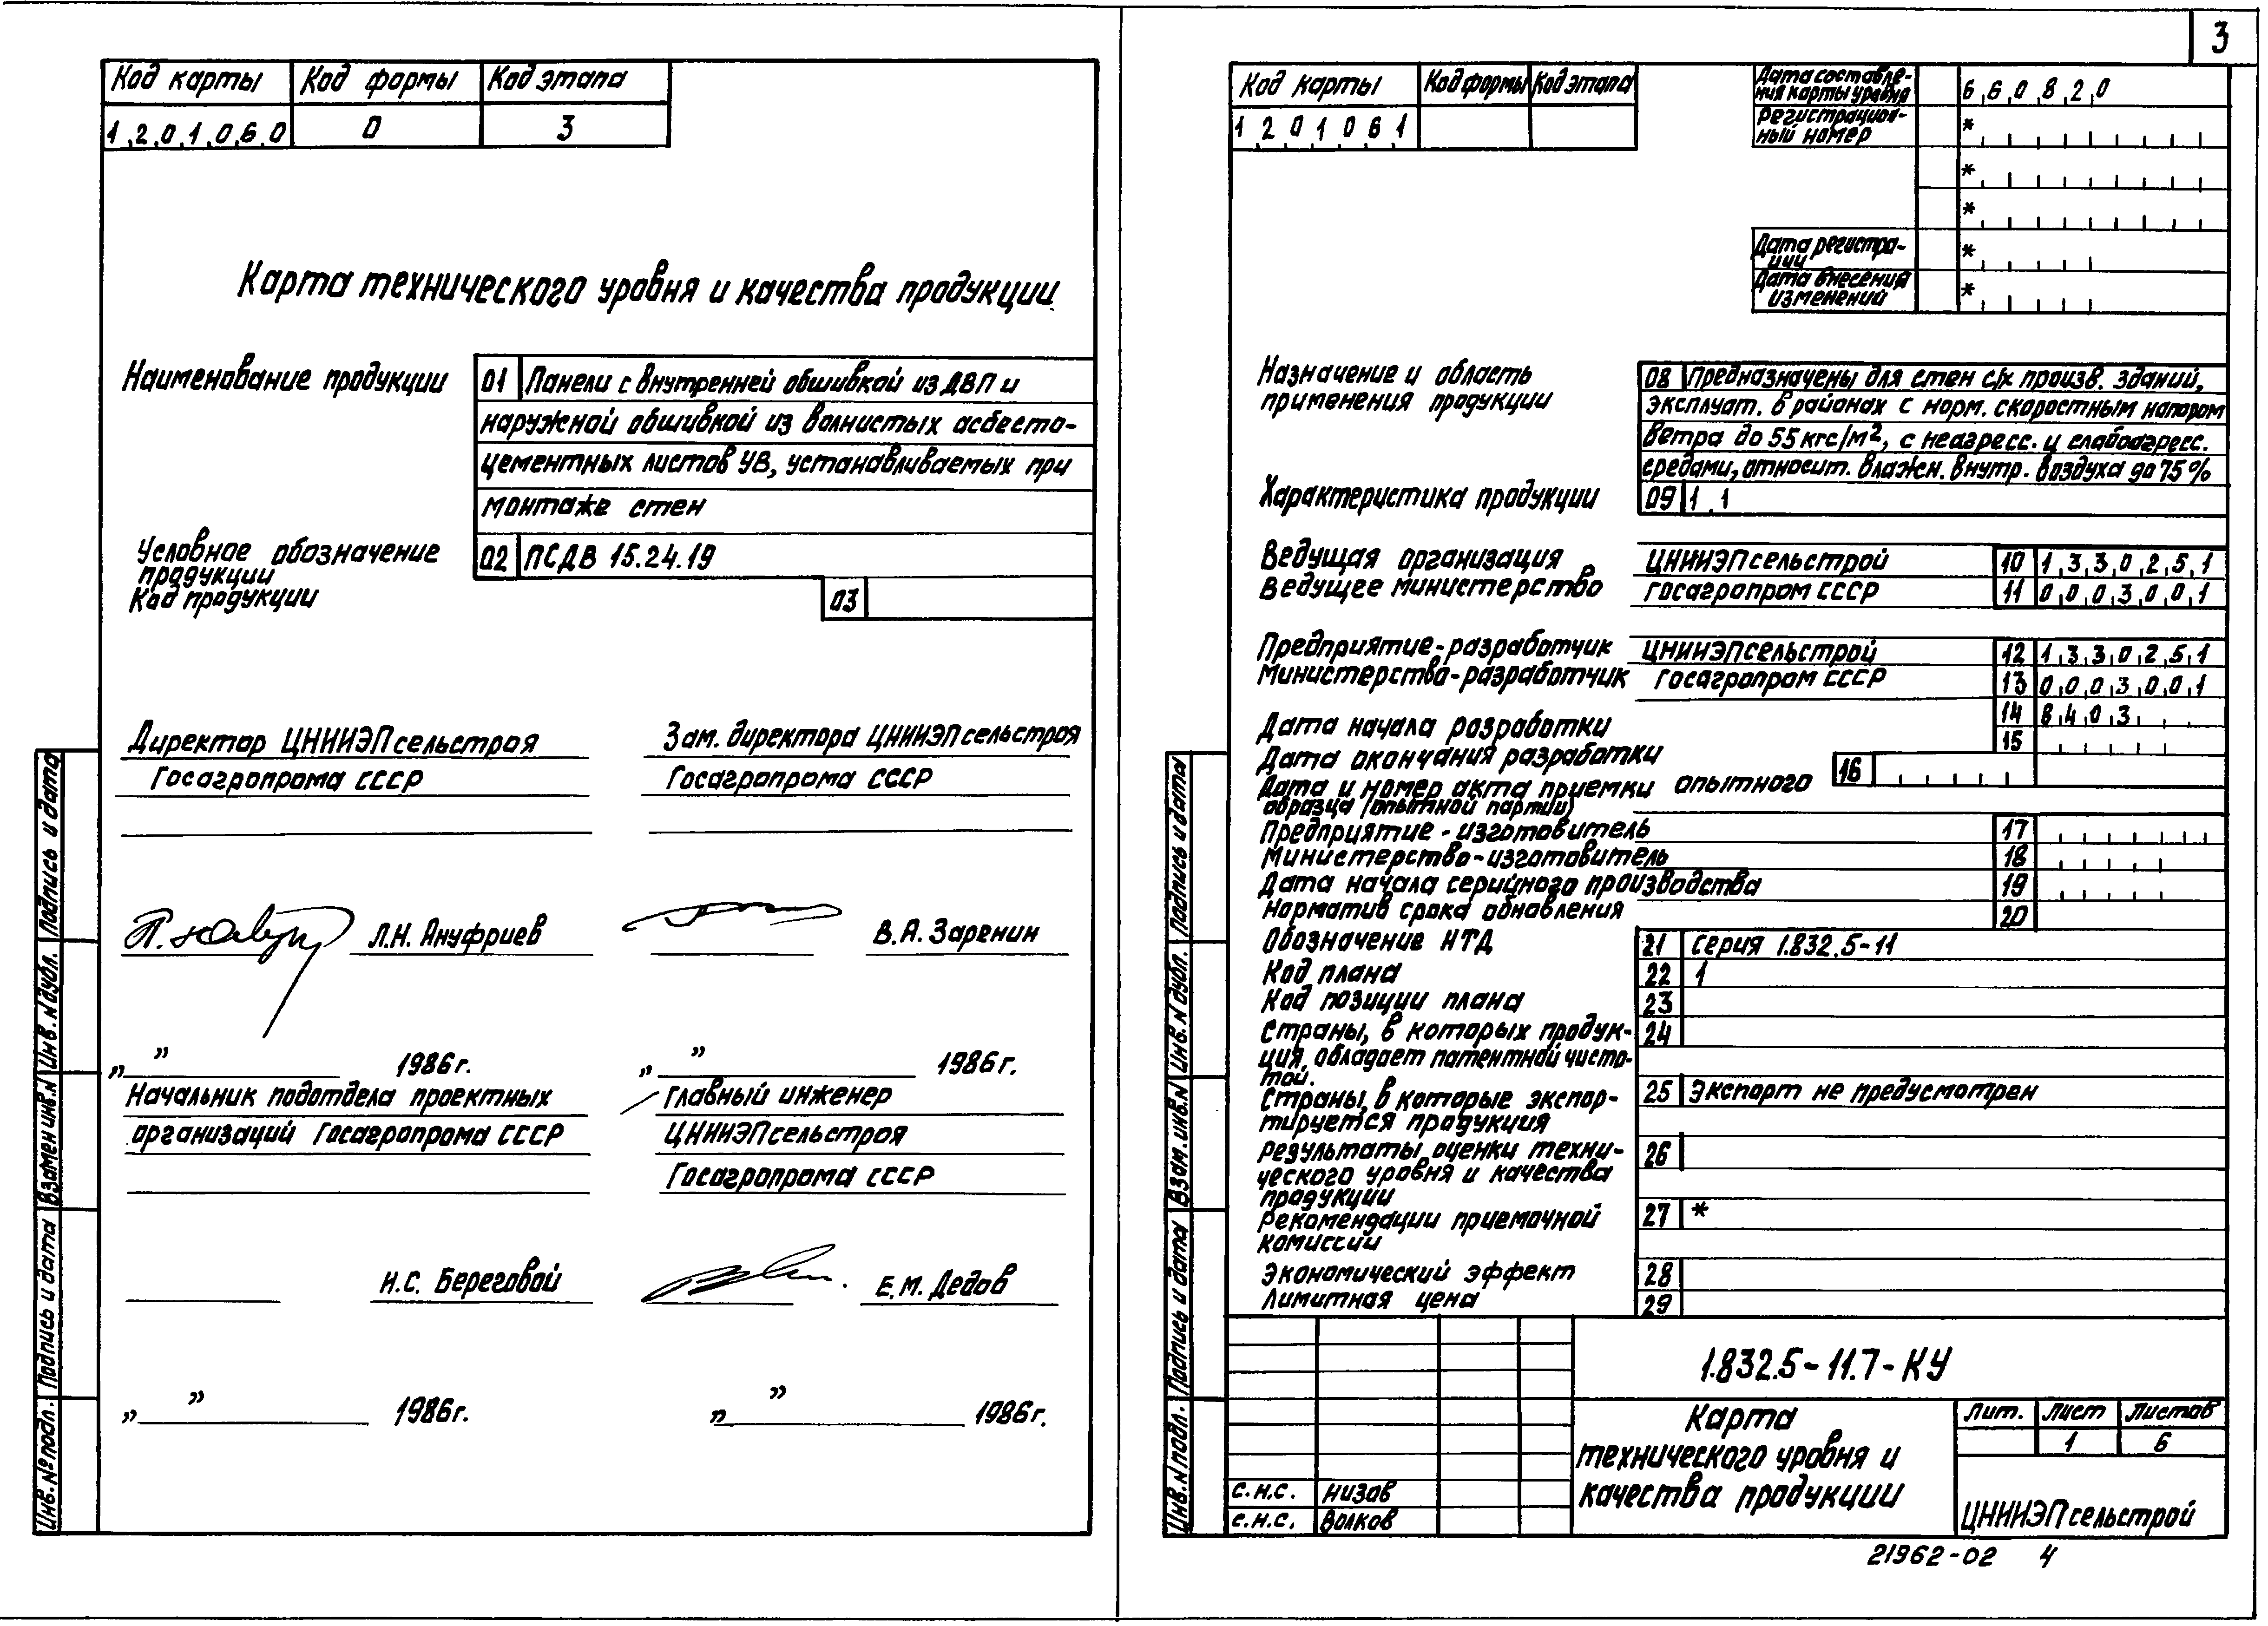 3
Код карты Код формы Код этапа
1,2,0,1,0,6,0 0 3
Карта технического уровня и качества продукции
Наименование продукции 01 Панели с внутренней обшивкой из ДВП и
наружной обшивкой из волнистых асбесто-
цементных листов УВ, устанавливаемых при
монтаже стен
Условное обозначение
продукции
02 ПСДВ 15.24.19
Код продукции 03
Директор ЦНИИЭПсельстроя
Госагропрома СССР
Зам. директора ЦНИИЭПсельстроя
Госагропрома СССР
Л.Н. Ануфриев
В.А. Заренин
„ ” 1986г.
„ ” 1986г.
Начальник подотдела проектных
организаций Госагропрома СССР
Главный инженер
ЦНИИЭПсельстроя
Госагропрома СССР
Н.С. Береговой
Е.М. Дедов
„ ” 1986г.
„ ” 1986г.
Подпись и дата
Инв. N дубл.
Взамен инв. N
Подпись и дата
Инв. № подл.
Код карты Код формы Код этапа
1 2 0 1 0 6 1
Дата составле-
ния карты уровня
6,6,0,8,2,0
Регистрацион-
ный номер
*
*
*
Дата регистра-
ции
*
Дата внесения
изменений
*
Назначение и область
применения продукции
08 Предназначены для стен с/х произв. зданий,
эксплуат. в районах с норм. скоростным напором
ветра до 55 кгс/м², с неагресс. и слабоагресс.
средами, относит. влажн. внутр. воздуха до 75%
Характеристика продукции 09 1.1
Ведущая организация ЦНИИЭПсельстрой 10 1,3,3,0,2,5,1
Ведущее министерство Госагропром СССР 11 0,0,0,3,0,0,1
Предприятие-разработчик ЦНИИЭПсельстрой 12 1,3,3,0,2,5,1
Министерство-разработчик Госагропром СССР 13 0,0,0,3,0,0,1
Дата начала разработки 14 8,4,0,3
Дата окончания разработки 15
Дата и номер акта приемки опытного 16
образца (опытной партии)
Предприятие-изготовитель 17
Министерство-изготовитель 18
Дата начала серийного производства 19
Норматив срока обновления 20
Обозначение НТД 21 Серия 1.832.5-11
Код плана 22 1
Код позиции плана 23
Страны, в которых продук- 24
ция, обладает патентной чисто-
той.
Страны, в которые экспор- 25 Экспорт не предусмотрен
тируется продукция
Результаты оценки техни- 26
ческого уровня и качества
продукции
Рекомендации приемочной 27 *
комиссии
Экономический эффект 28
Лимитная цена 29
1.832.5-11.7-КУ
Карта
технического уровня и
качества продукции
Лит. Лист Листов
1 6
ЦНИИЭПсельстрой
с.н.с. Низов
с.н.с. Волков
Подпись и дата
Инв. N дубл.
Взам. инв. N
Подпись и дата
Инв. N подл.
21962-02 4